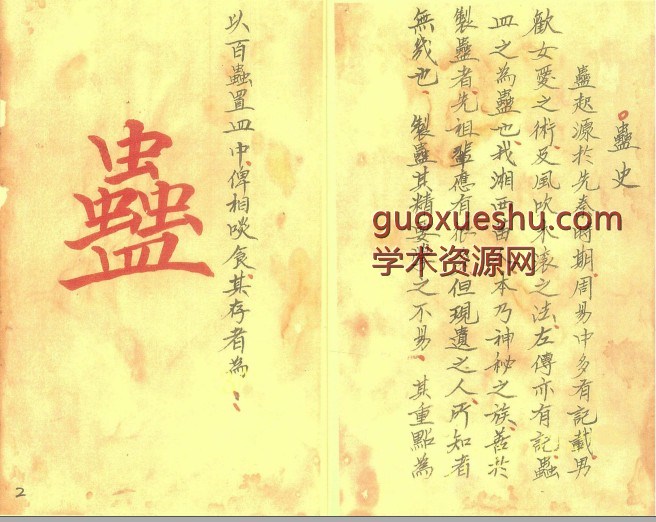 蠱史
蠱起源於先秦時期周易中多有記載男
歡女愛之術及風吹之法左傳亦有記蟲
皿之為蠱也我湘西苗本乃神秘之族善於
製蠱者先祖輩應有但現遺之人所知者
無幾也 製蠱其精要之不易 其重點為
以百蟲置皿中俾相啖食其存者為：
蠱
2
guoxueshu.com
学术资源网